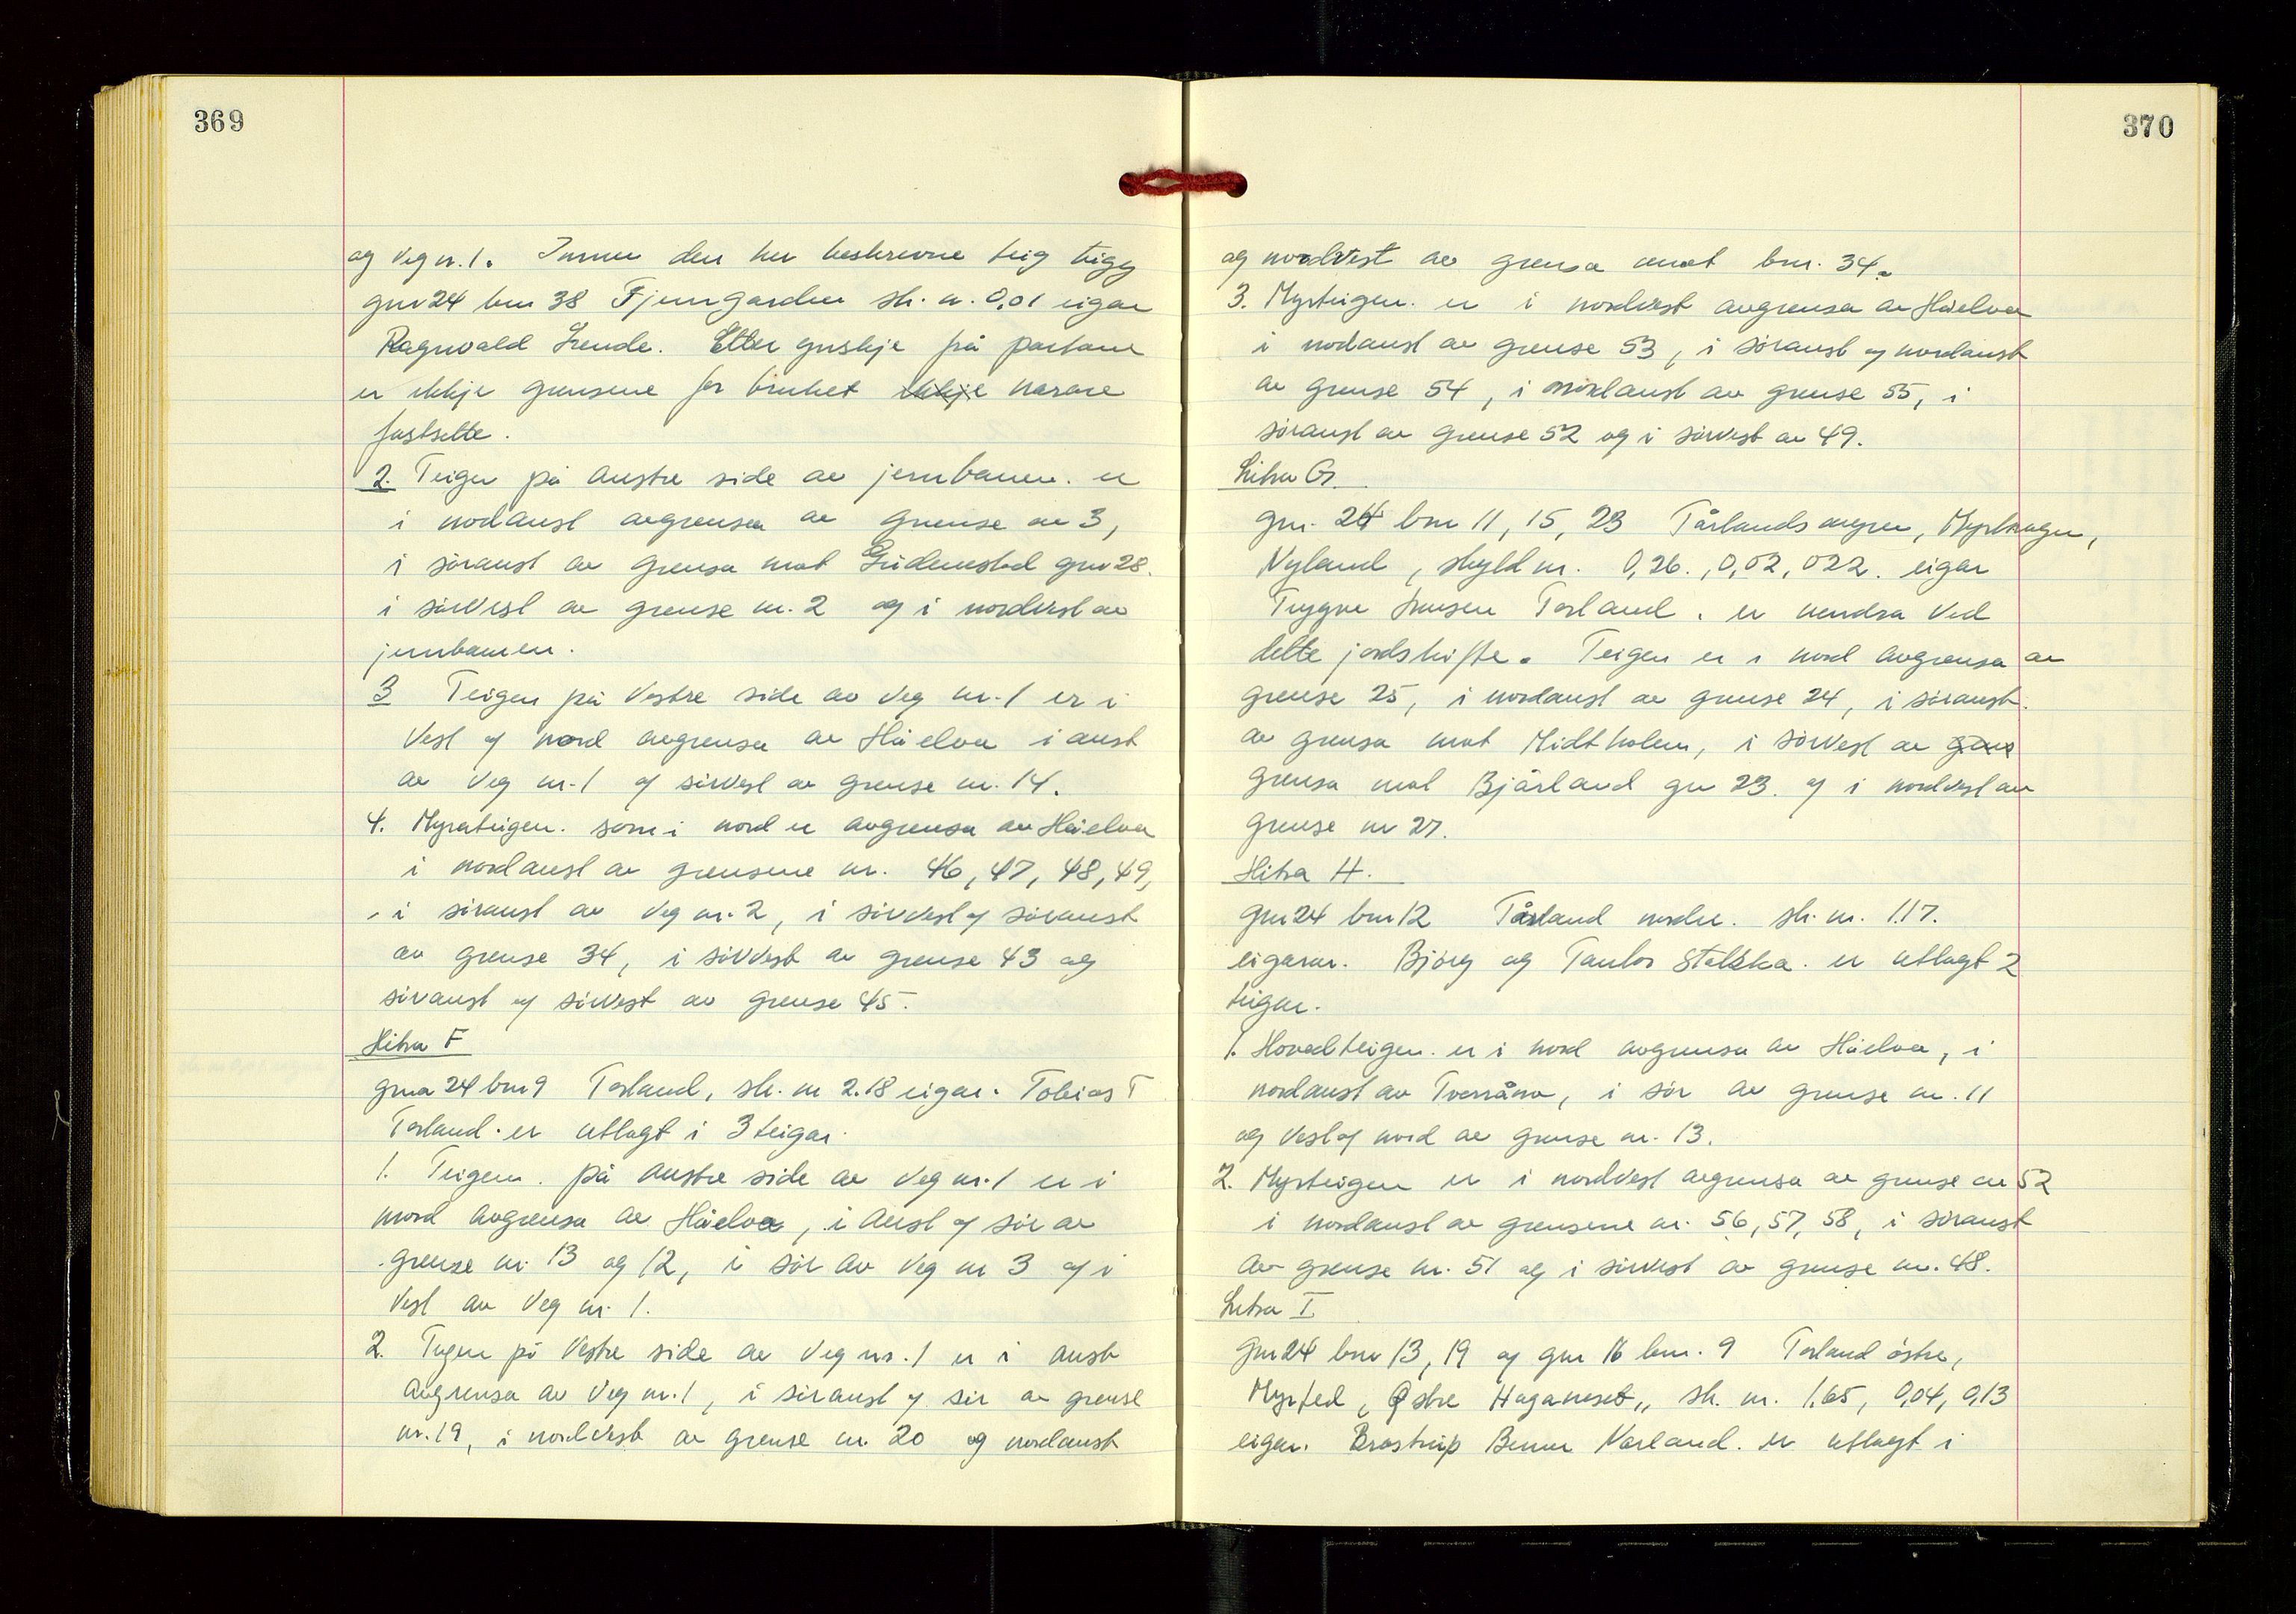 369
og veg nr. 1. Innen den her beskrevne teig ligg
gnr 24 bnr 38 Fjerngarden sk. nr. 0,01 eigar
Ragnvald Grude. Etter ynskje frå partane
er ikkje grensene for bruket ikkje narare
fastsette.
2. Teigen på austre side av jernbanen. er
i nordaust avgrensa av grense nr 3,
i søraust av grensa mot Gudmestad gnr 28.
i sørvest av grense nr. 2 og i nordvest av
jernbanen.
3 Teigen på vestre side av veg nr. 1 er i
Vest og nord avgrensa av Håelva i aust
av veg nr. 1 og sørvest av grense nr. 14.
4. Myrateigen. som i nord er avgrensa av Håelva
i nordaust av grensene nr. 46, 47, 48, 49,
i søraust av veg nr. 2, i sørvest og søraust
av grense 34, i sørvest av grense 43 og
søraust og sørvest av grense 45.
Litra F
gnr 24 bnr 9 Torland, sk. nr 2.18 eigar. Tobias T
Torland. er utlagt i 3 teigar.
1. Teigen. på austre side av veg nr. 1 er i
nord avgrensa av Håelva, i aust og sør av
grense nr 13 og 12, i sør av veg nr 3 og i
vest av veg nr. 1.
2. Teigen på vestre side av veg nr. 1 er i aust
avgrensa av veg nr. 1, i søraust og sør av grense
nr. 19, i nordvest av grense nr. 20 og nordaust
370
og nordvest av grensa mot bnr. 34.
3. Myrteigen. er i nordvest avgrensa av Håelva
i nordaust av grense 53, i søraust og nordaust
av grense 54, i nordaust av grense 55, i
søraust av grense 52 og i sørvest av 49.
Litra G.
gnr. 24 bnr 11, 15, 23 Tårlandsmyren, Myrhagen,
Nyland, skyld nr. 0,26., 0,02, 022. eigar
Trygve Jensen Torland. er uendra ved
dette jordskifte. Teigen er i nord avgrensa av
grense 25, i nordaust av grense 24, i søraust.
av grensa mot Midtholen, i sørvest av gens
grensa mot Bjårland gnr 23. og i nordvest av
grense nr 27.
Litra H.
gnr 24 bnr 12 Tårland nordre. sk. nr. 1.17.
eigarar. Bjørg og Taulos Stokka. er utlagt 2
teigar.
1. Hovedteigen. er i nord avgrensa av Håelva, i
nordaust av Tverråna, i sør av grense nr. 11
og vest og nord av grense nr. 13.
2. Myrteigen er i nordvest avgrensa av grense nr 52
i nordaust av grensene nr. 56, 57, 58, i søraust
av grense nr. 51 og i sørvest av grense nr. 48.
Litra I
gnr 24 bnr 13, 19 og gnr 16 bnr. 9 Torland östre,
Myrfed, Østre Haganeset,, sk. nr. 1.65, 0,04, 0,13
eigar. Brostrup Varland. er utlagt i